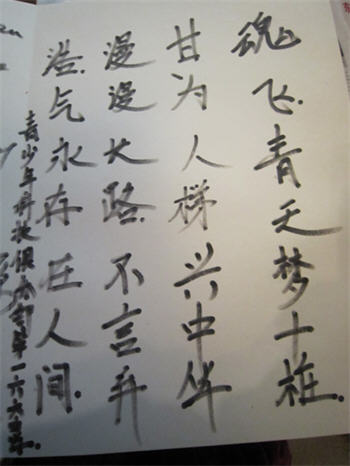 魂飞青天梦十桩.
甘为人梯兴中华
漫漫大路.不言弃
溢.气永存在人间.
青少年科技俱乐部